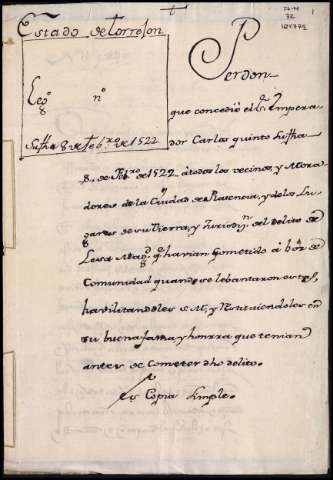 Estado de torrejon
Leg.º n.º
Su fha 8 de feb.ro de 1522
Perdon
que concedió el s.r Empera
dor Carlos quinto su fha
8. de feb.ro de 1522 a todos los vecinos, y Mora
dores de la Ciudad de Plasencia, y de los Lu
gares de su tierra, y Jurisdi.n del delito de
Lesa Mag.d q.e havian Cometido à bòz de
Comunidad quando se lebantaron
havilitandoles S. M. y Restituiendoles en
su buena fama y honrra que tenian
antes de Cometer dho delito.
Es Copia Simple.